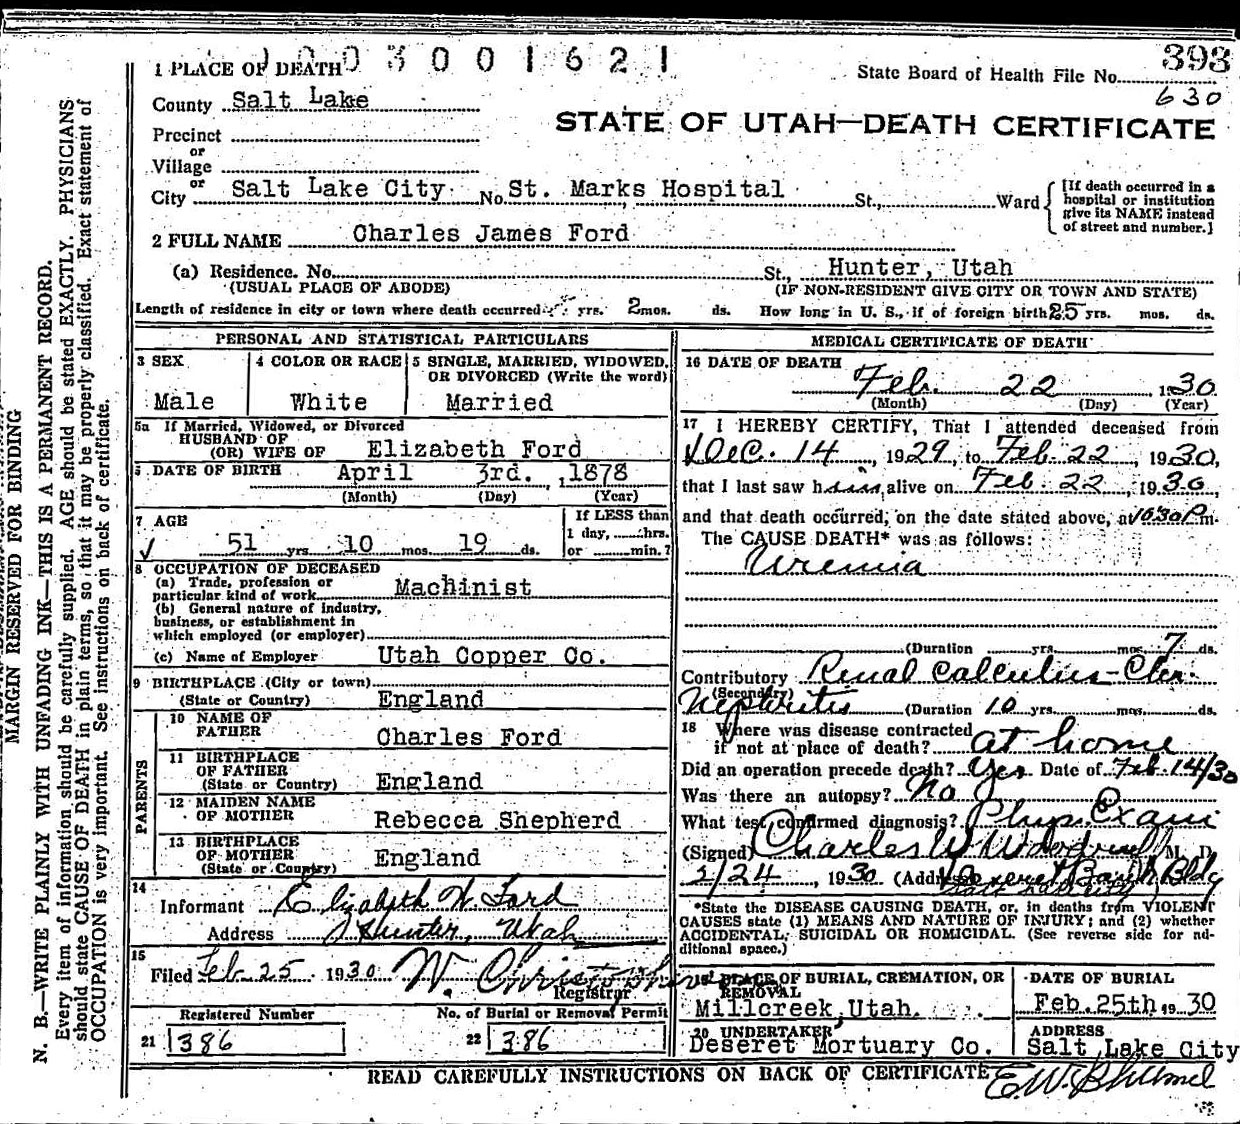 0 0 3 0 0 1 6 2 1
393
1 PLACE OF DEATH
State Board of Health File No.
630
County Salt Lake
STATE OF UTAH—DEATH CERTIFICATE
Precinct
or
Village
or
City Salt Lake City No. St. Marks Hospital St., Ward
[If death occurred in a
hospital or institution
give its NAME instead
of street and number.]
2 FULL NAME Charles James Ford
(a) Residence. No. St., Hunter, Utah
(USUAL PLACE OF ABODE) (IF NON-RESIDENT GIVE CITY OR TOWN AND STATE)
Length of residence in city or town where death occurred yrs. 2 mos. ds. How long in U. S., if of foreign birth 25 yrs. mos. ds.
PERSONAL AND STATISTICAL PARTICULARS
3 SEX
Male
4 COLOR OR RACE
White
5 SINGLE, MARRIED, WIDOWED,
OR DIVORCED (Write the word)
Married
5a If Married, Widowed, or Divorced
HUSBAND OF
(OR) WIFE OF Elizabeth Ford
DATE OF BIRTH April 3rd. , 1878
(Month) (Day) (Year)
7 AGE
51 yrs. 10 mos. 19 ds.
If LESS than
1 day, hrs.
or min.?
8 OCCUPATION OF DECEASED
(a) Trade, profession or
particular kind of work Machinist
(b) General nature of industry,
business, or establishment in
which employed (or employer)
(c) Name of Employer Utah Copper Co.
9 BIRTHPLACE (City or town)
(State or Country) England
PARENTS
10 NAME OF
FATHER Charles Ford
11 BIRTHPLACE
OF FATHER
(State or Country) England
12 MAIDEN NAME
OF MOTHER Rebecca Shepherd
13 BIRTHPLACE
OF MOTHER
(State or Country) England
14
Informant Elizabeth W. Ford
Address Hunter, Utah
15
Filed Feb 25 1930 W. Christophers
Registrar
Registered Number
21 1386
No. of Burial or Removal Permit
22 1386
MEDICAL CERTIFICATE OF DEATH
16 DATE OF DEATH
Feb. 22 1930
(Month) (Day) (Year)
17 I HEREBY CERTIFY, That I attended deceased from
Dec. 14, 1929, to Feb. 22, 1930,
that I last saw him alive on Feb. 22, 1930,
and that death occurred, on the date stated above, at 1030 P m.
The CAUSE DEATH* was as follows:
Uremia
(Duration yrs. mos. 7 ds.
Contributory Renal Calculus-Chr.
(Secondary)
Nephritis (Duration 10 yrs. mos. ds.
18 Where was disease contracted
if not at place of death? at home
Did an operation precede death? Yes Date of Feb. 14/30
Was there an autopsy? No
What test confirmed diagnosis? Phys. Exam
(Signed) Charles W Woodruff M. D.
2/24, 1930 (Address) Deseret Bank Bldg
*State the DISEASE CAUSING DEATH, or, in deaths from VIOLENT
CAUSES state (1) MEANS AND NATURE OF INJURY; and (2) whether
ACCIDENTAL, SUICIDAL OR HOMICIDAL. (See reverse side for ad-
ditional space.)
PLACE OF BURIAL, CREMATION, OR
REMOVAL
Millcreek, Utah.
DATE OF BURIAL
Feb. 25th, 1930
20 UNDERTAKER
Deseret Mortuary Co.
ADDRESS
Salt Lake City
READ CAREFULLY INSTRUCTIONS ON BACK OF CERTIFICATE
MARGIN RESERVED FOR BINDING
N. B.—WRITE PLAINLY WITH UNFADING INK—THIS IS A PERMANENT RECORD.
Every item of information should be carefully supplied. AGE should be stated EXACTLY. PHYSICIANS
should state CAUSE OF DEATH in plain terms, so that it may be properly classified. Exact statement of
OCCUPATION is very important. See instructions on back of certificate.